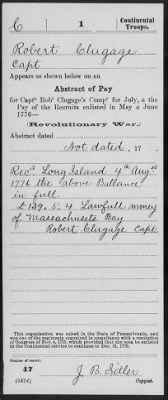 C
1
Continental
Troops.
Robert Clugage
Capt
Appears as shown below on an
Abstract of Pay
for Captn Robt Clugage's Compy for July, & the
Pay of the Recruits enlisted in May & June
1776—
Revolutionary War.
Abstract dated
Not dated, 17 .
Recd Long Island 4th Augt
1776 the above Ballance
in full
£139. 5. 4 Lawfull money
of Massachusets Bay
Robert Clugage Capt.
This organization was raised in the State of Pennsylvania, and
was one of the regiments organized in compliance with a resolution
of Congress of Nov. 4, 1775, which provided that the men be enlisted
in the Continental service to continue to Dec. 31, 1776.
Number of record:
47
(547d)
J. B. Sitler